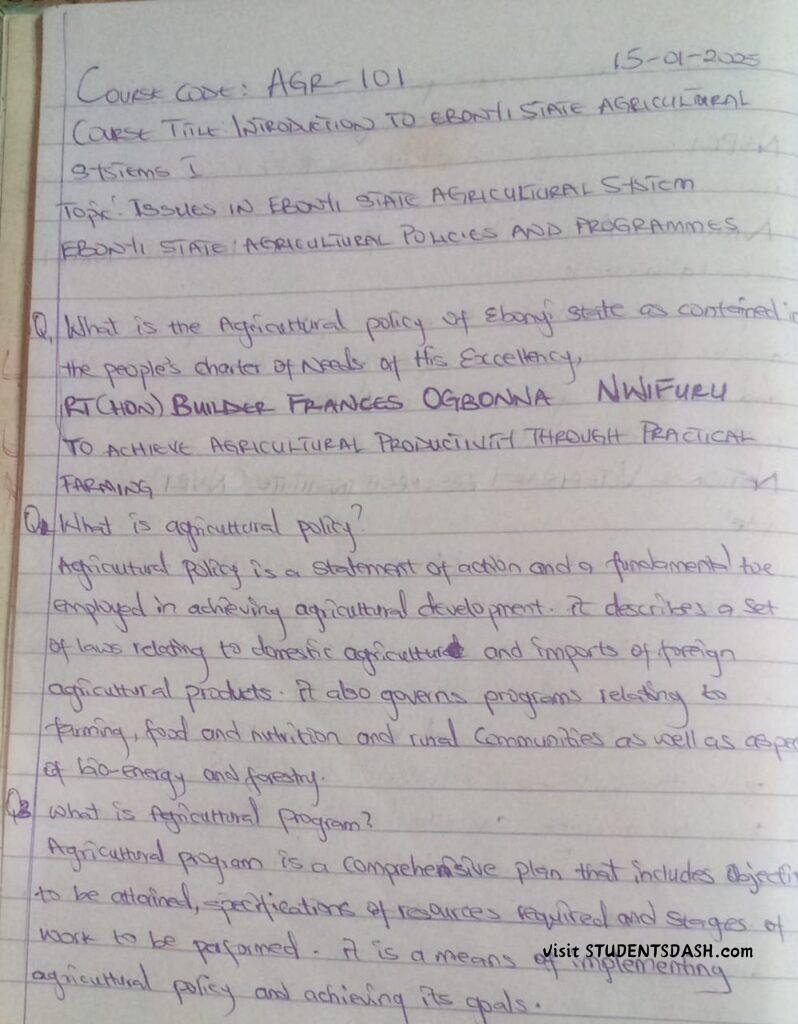 15-01-2025
COURSE CODE: AGR-101
COURSE TITLE INTRODUCTION TO EBONYI STATE AGRICULTURAL
SYSTEMS I
Topic: ISSUES IN EBONYI STATE AGRICULTURAL SYSTEM
EBONYI STATE AGRICULTURAL POLICIES AND PROGRAMMES
Q1 What is the Agricultural policy of Ebonyi state as contained in
the people's charter of Needs of His Excellency,
RT(HON) BUILDER FRANCES OGBONNA NWIFURU
TO ACHIEVE AGRICULTURAL PRODUCTIVITY THROUGH PRACTICAL
FARMING
Q2 What is agricultural policy?
Agricultural policy is a statement of action and a fundamental toe
employed in achieving agricultural development. it describes a set
of laws relating to domestic agriculture and imports of foreign
agricultural products. it also governs programs relating to
farming, food and nutrition and rural Communities as well as aspec
of bio-energy and forestry.
Q3 What is Agricultural program?
Agricultural program is a comprehensive plan that includes Objecti
to be attained, specifications of resources required and stages of
work to be performed. it is a means of implementing
agricultural policy and achieving its goals.
Visit STUDENTSDASH.com